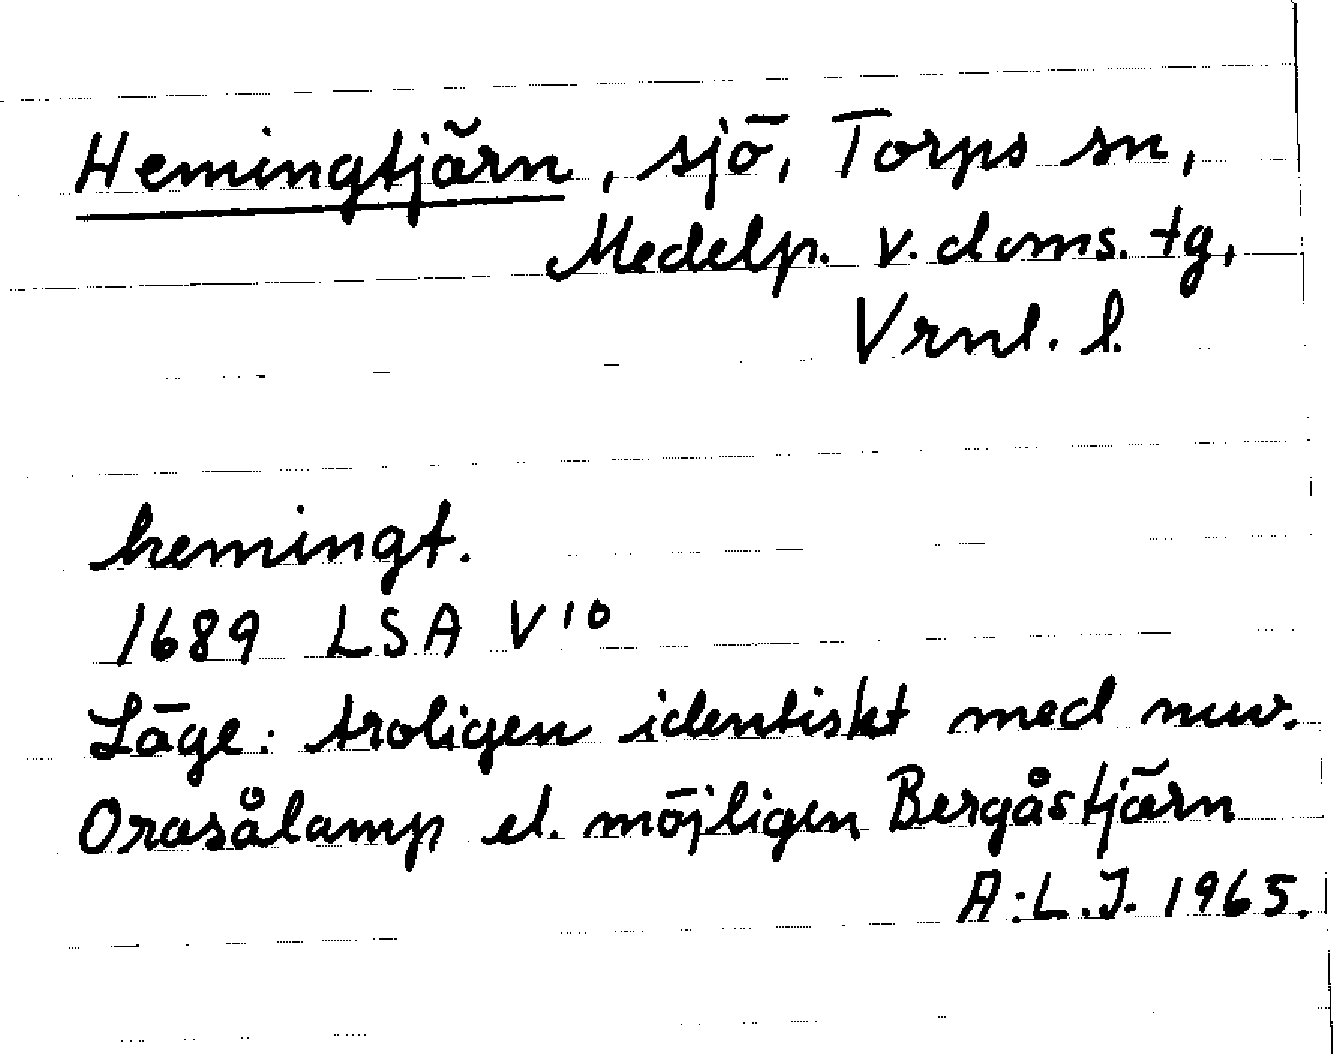 Hemingtjärn, sjö, Torps sn,
Medelp. v. doms. tg,
Vrnl. l.
hemingt.
1689 LSA V 10
Läge: troligen identiskt med nuv.
Orasålamp el. möjligen Bergåstjärn
A:L.J. 1965.